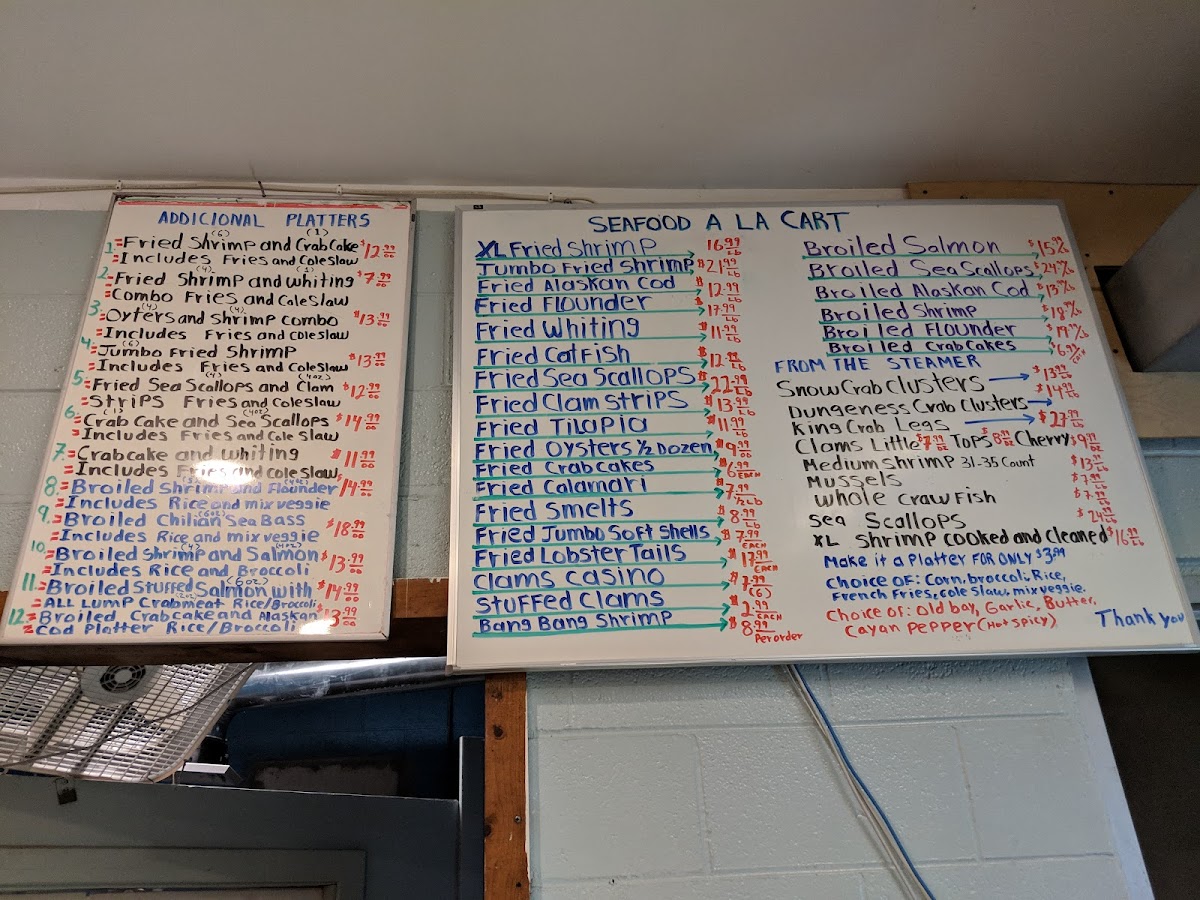 ADDICIONAL PLATTERS
(6) (1)
1.=Fried Shrimp and Crab Cake $12.99
=Includes Fries and Coleslaw
(4) (1)
2.=Fried Shrimp and whiting $7.99
=Combo Fries and Coleslaw
(4) (4)
3.=Oyters and Shrimp Combo $13.99
=Includes Fries and coleslaw
(6)
4.=Jumbo Fried Shrimp $13.99
=Includes Fries and Coleslaw
(4oz)
5.=Fried Sea Scallops and Clam $12.99
=Strips Fries and Coleslaw
(1) (4oz)
6.=Crab Cake and Sea Scallops $14.99
=Includes Fries and Cole slaw
7.=Crabcake and whiting $11.99
=Includes Fries and cole slaw
8.=Broiled Shrimp and Flounder $14.99
=Includes Rice and mix veggie
(6oz)
9.=Broiled Chilian Sea Bass $18.99
=Includes Rice and mix veggie
10.=Broiled Shrimp and Salmon $13.99
=Includes Rice and Broccoli
(6oz)
11.=Broiled Stuffed Salmon with $14.99
=ALL LUMP Crabmeat Rice/Broccoli
12.=Broiled Crabcake and Alaskan $13.99
=Cod Platter Rice/Broccoli
SEAFOOD A LA CART
XL Fried Shrimp 16.99 Lb
Jumbo Fried Shrimp $21.99 Lb
Fried Alaskan Cod $12.99 Lb
Fried Flounder $17.99 Lb
Fried Whiting $11.99 Lb
Fried Catfish $12.99 Lb
Fried Sea Scallops $22.99 Lb
Fried Clam Strips $13.99 Lb
Fried Tilapia $11.99 Lb
Fried Oysters 1/2 Dozen $9.99
Fried Crabcakes $6.99 EACH
Fried Calamari $7.99 1/2 Lb
Fried Smelts $8.99 Lb
Fried Jumbo Soft Shells $7.99 EACH
Fried Lobster Tails $17.99 EACH
Clams Casino $7.99 (6)
Stuffed Clams $2.99 EACH
Bang Bang Shrimp $8.99 Per order
Broiled Salmon $15.99
Broiled Sea Scallops $24.99
Broiled Alaskan Cod $13.99
Broiled Shrimp $18.99
Broiled FLOUNDER $19.99
Broiled Crabcakes $6.99
FROM THE STEAMER
Snow Crab Clusters $13.99 Lb
Dungeness Crab Clusters $14.99 Lb
King Crab Legs $27.99 Lb
Clams Little $7.99 DZ Tops DZ Cherry $9.99 DZ
Medium Shrimp 31-35 Count $13.99 Lb
Mussels $7.99 Lb
Whole Craw Fish $7.99 Lb
Sea Scallops $24.99 Lb
XL Shrimp cooked and cleaned $16.99 Lb
Make it a Platter FOR ONLY $3.99
Choice OF: Corn, broccoli, Rice,
French Fries, cole slaw, mix veggie.
Choice of: Old bay, Garlic, Butter,
Cayan Pepper (Hot Spicy)
Thank you